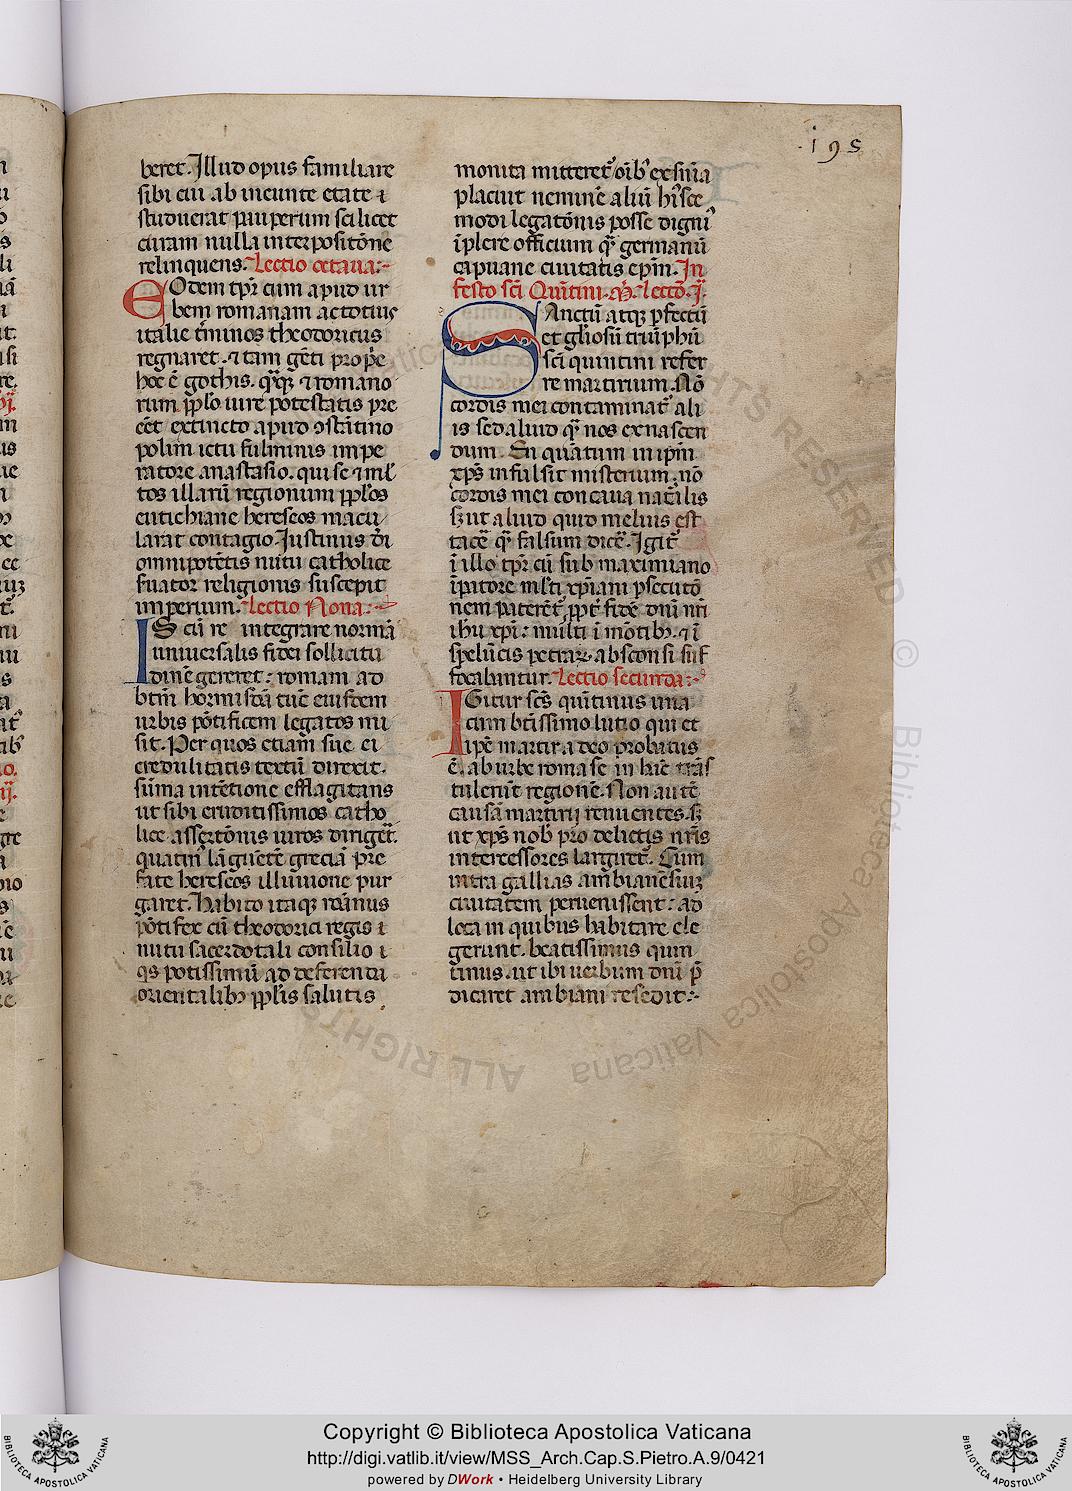 .195
beret. Illud opus familiare
sibi cui ab ineunte etate i
studuerat pauperum scilicet
curam nulla interpositōne
relinquens. Lectio octaua:-
EOdem tp̄r cum apud ur
bem romanam ac totius
italie t̄minos theodoricus
regnaret. ⁊ tam gēti prop̄e
hoc ē gothis. q̄ꝗ ⁊ romano
rum pp̄lo iure potestatis pre
eēt extincto apud ɔstātino
polim ictu fulminis impe
ratore anastasio. qui se ⁊ ml̄
tos illarū regionum pp̄los
eutichiane hereseos macu
larat contagio. Iustinus d̄i
omnipotētis nutu catholice
fuator religionis suscepit
imperium. Lectio Nona:-
IS cū re integrare normā
uniuersalis fidei sollicitu
dinē gereret: romam ad
btm̄ hormisdā tūc eiusdem
urbis pōtificem legatos mi
sit. Per quos etiam sue ei
credulitatis textū direxit.
sūma intētione efflagitans
ut sibi eruditissimos catho
lice assertōnis uiros dirigēt.
quatin᾽ lāguētē greciā pre
fate hereseos illuuione pur
garet. Habito itaqꝫ rōānus
pōtifex cū theodorici regis i
nutu sacerdotali consilio i
q̄s potissimū ad deferenda
orientalibꝫ pp̄lis salutis
monita mitteret᾽ oīb᾽ ex sn̄ia
placuit neminē aliū hi᾽sce
modi legatōnis posse digni᾽
īplere officium q̄ germanū
capuane ciuitatis ep̄m. In
festo sc̄i Quītini. M̄. lectō. j̄.
SAnctū atqꝫ ꝑfectū
et gl̄iosū triūphū
sc̄i quintini refer
re martirium. Nō
cordis mei contaminat᾽ ali
is sed aliud q̄ nos ex nascen
dum. En quātum in ip̄m
xp̄s infulsit misterium. nō
cordis mei concaua nat᾽ilis
sꝫ ut aliud quid melius est
tacē q̄ falsum dicē. Igit᾽
ī illo tp̄r cū sub maximiano
īpatore ml̄ti xp̄iani ꝑsecutō
nem paterēt᾽ ꝓpt᾽ fidē dn̄i nr̄i
ih̄u xp̄i: multi ī mōtibꝫ. ⁊ ī
spelūcis petraꝝ. absconsi suf
focabantur. Lectio secunda:-
IGitur sc̄s quītinus una
cum btīssimo lutio qui et
ip̄e martir a deo probatus
ē. ab urbe roma se in hāc trās
tulerūt regionē. Non autē
causā martirij renuentes. sꝫ
ut xp̄s nob᾽ pro delictis nr̄is
intercessores largiret᾽. Cum
intra gallias ambianēsiuꝫ
ciuitatem peruenissent: ad
loca in quibus habitare ele
gerunt. beatissimus quin
tinus. ut ibi uerbum dn̄i p̄
dicaret ambianis resedit:-
Copyright © Biblioteca Apostolica Vaticana
http://digi.vatlib.it/view/MSS_Arch.Cap.S.Pietro.A.9/0421
powered by DWork • Heidelberg University Library